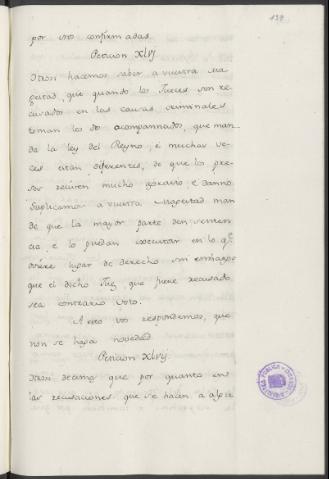 139
por vro confirmadas.
Peticion XLVJ
Otrosi hacemos saber a vuestra Ma-
gestad, que quando los Jueces son re-
cusados en las causas criminales
toman los do acompannados, que man-
da la ley del Reyno, é muchas ve-
ces estan diferentes, de que los pre-
sos reciven mucho agravio e danno.
Suplicamos a vuestra Magestad man-
de que la mayor parte den senten-
cia é lo puedan executar en lo q.e
oviere lugar de derecho sin embargo
que el dicho Juez que fuere recusado
sea contrario voto.
A esto vos respondemos, que
non se haga novedad
Peticion XLVIJ.
Otrosi decimos que por quanto en
las recusaciones que se hacen a alcal